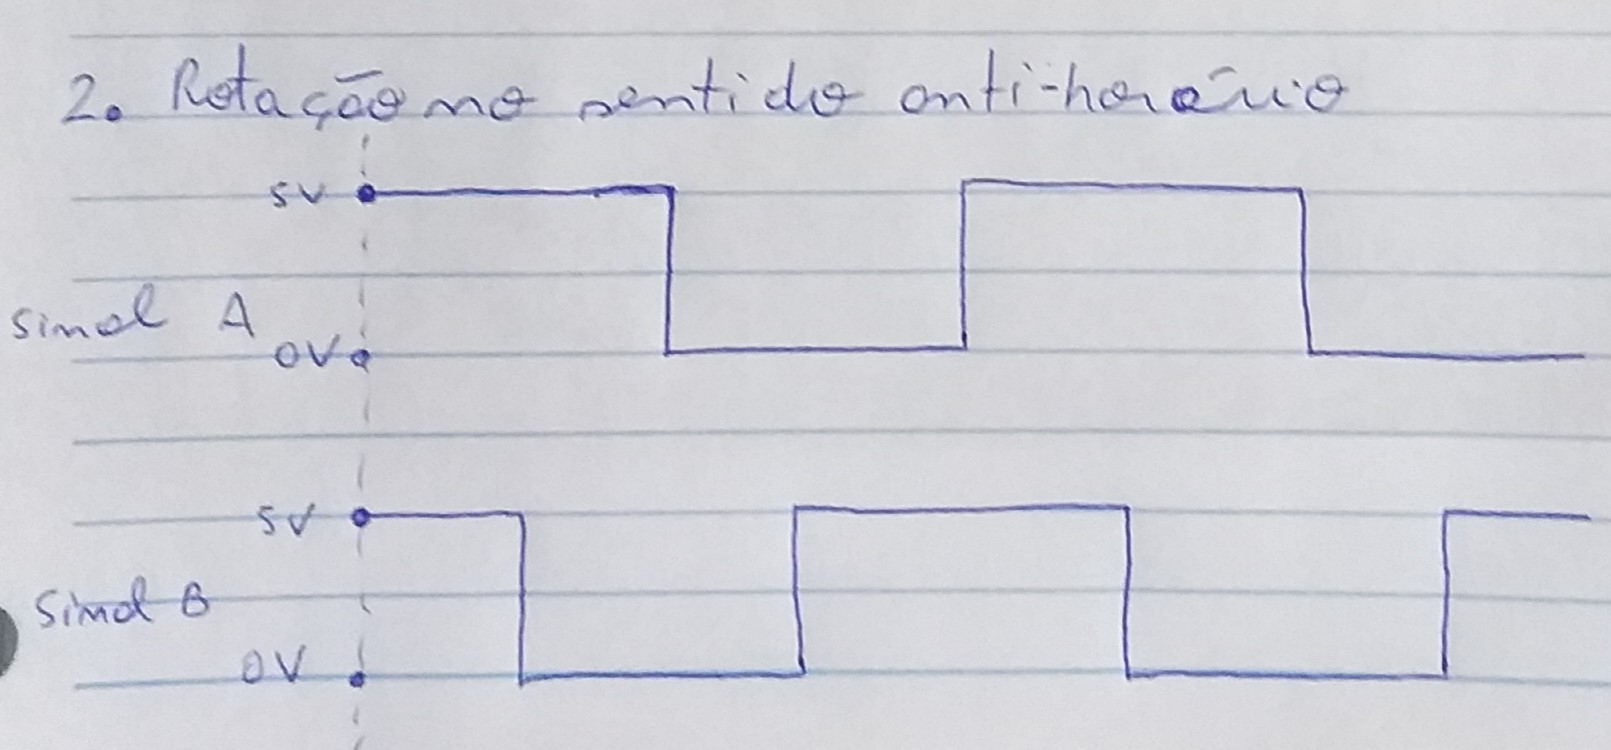 2. Rotação no sentido anti-horário
5V
Sinal A
0V
5V
Sinal B
0V